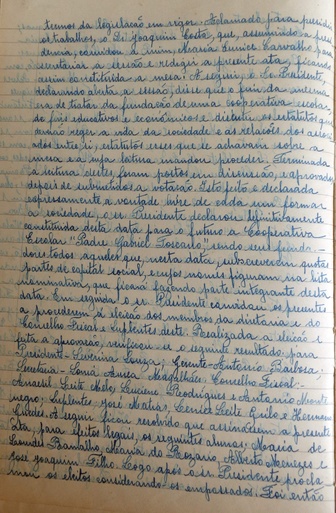 termos da legislação em vigor. Aclamado para presidir
os trabalhos, o Dr. Joaquim Costa, que, assumindo a presi-
dência, convidou a mim, Maria Eunice Carvalho para
secretariar a sessão e redigir a presente ata, ficando
assim constituida a mesa. A seguir, o Sr. Presidente,
declarando aberta a sessão, disse que o fim da mesma
era de tratar da fundação de uma cooperativa escolar
de fins educativos e econômicos e discutir os estatutos que
deverão reger a vida da sociedade e as relações dos associ-
ados entre si, estatutos esses que se achavam sobre a
mesa e cuja leitura mandou proceder. Terminada
a leitura destes, foram postos em discussão, e aprovados
depois de submetidos a votação. Isto feito e declarada
expressamente a vontade livre de cada um formar
a sociedade, o sr. Presidente declarou definitivamente
constituida, desta data para o futuro a Cooperativa
Escolar "Padre Gabriel Toscano", sendo seus funda-
dores todos aqueles que, nesta data, subscrevem quotas
partes de capital social, e cujos nomes figuram na lista
nominativa, que ficará fazendo parte integrante desta
data. Em seguida, o sr. Presidente convidou os presentes
a procederem à eleição dos membros da diretoria e do
Conselho Fiscal e suplentes deste. Realizada a eleição e
feita a apuração, verificou-se o seguinte resultado: para
Presidente - Severina Souza; Gerente - Antonio Barbosa;
Secretária - Magalhães. Conselho Fiscal:-
Leite Melo, Luciene Rodrigues e Antonio Monte
negro; Suplentes: José Matias, Leite e Hermano
Guedes. A seguir ficou resolvido que assinassem a presente
Ata, para efeitos legais, os seguintes alunos: Maria de
Lourdes Ramalho, Maria do Rozario, Alberto Menezes e
José Joaquim Filho. Logo após o sr. Presidente procla
mou os eleitos considerando os empossados. Foi então